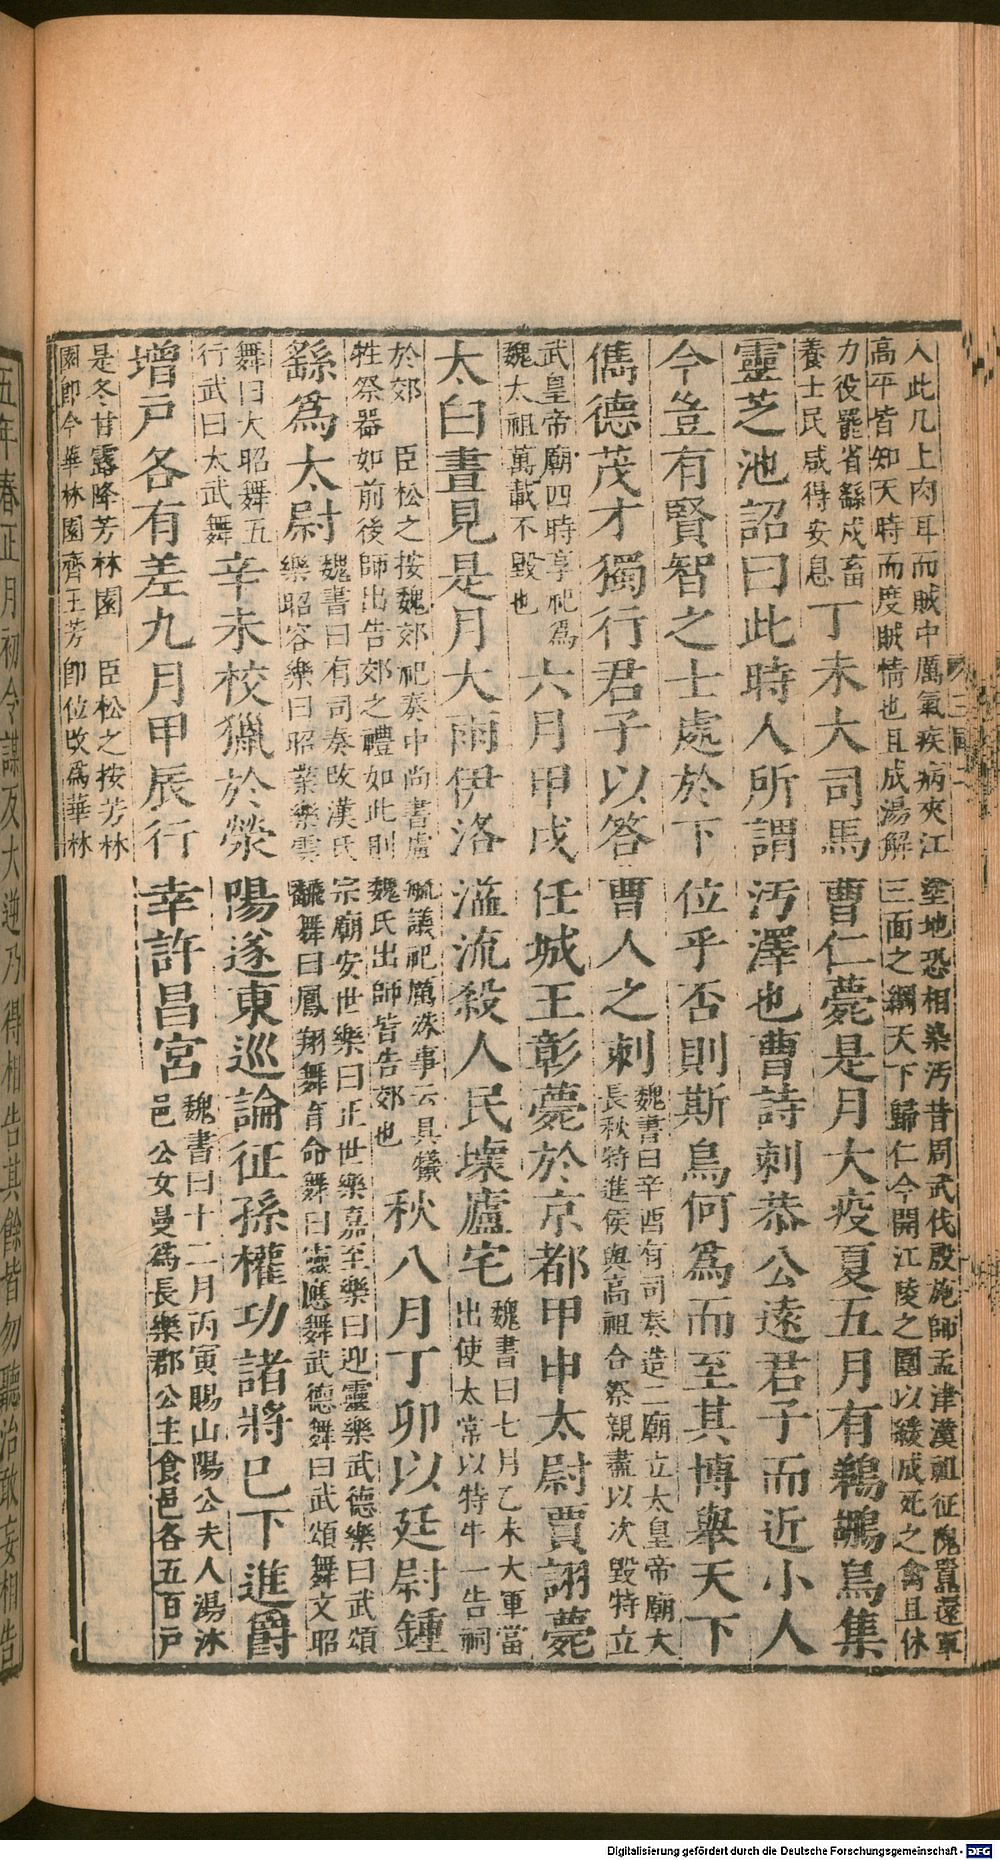 入此几上肉耳而賊中厲氣疾病夾江塗地恐相染污昔周武伐殷旋師孟津漢祖征隗囂還軍
高平皆知天時而度賊情也且成湯解三面之網天下歸仁今開江陵之圍以緩成死之禽且休
力役罷省繇戍畜
養士民咸得安息
丁未大司馬曹仁薨是月大疫夏五月有鵜鶘鳥集
靈芝池詔曰此時人所謂污澤也曹詩刺恭公遠君子而近小人
今豈有賢智之士處於下位乎否則斯鳥何爲而至其博舉天下
儁德茂才獨行君子以答曹人之刺
魏書曰辛酉有司奏造二廟立太皇帝廟大
長秋特進侯與高祖合祭親盡以次毀特立
武皇帝廟四時享祀爲
魏太祖萬載不毀也
六月甲戌任城王彰薨於京都甲申太尉賈詡薨
太白晝見是月大雨伊洛溢流殺人民壞廬宅
魏書曰七月乙未大軍當
出使太常以特牛一告祠
於郊 臣松之按魏郊祀奏中尚書盧毓議祀厲殃事云具犧
牲祭器如前後師出告郊之禮如此則魏氏出師皆告郊也
秋八月丁卯以廷尉鍾
繇爲太尉
魏書曰有司奏改漢氏宗廟安世樂曰正世樂嘉至樂曰迎靈樂武德樂曰武頌
樂昭容樂曰昭業樂雲翹舞曰鳳翔舞育命舞曰靈應舞武德舞曰武頌舞文昭
舞曰大昭舞五
行武曰大武舞
辛未校獵於滎陽遂東巡論征孫權功諸將已下進爵
增戶各有差九月甲辰行幸許昌宮
魏書曰十二月丙寅賜山陽公夫人湯沐
邑公女曼爲長樂郡公主食邑各五百戶
是冬甘露降芳林園 臣松之按芳林
園即今華林園齊王芳即位改爲華林
五年春正月初令謀反大逆乃得相告其餘皆勿聽治敢妄相告
Digitalisierung gefördert durch die Deutsche Forschungsgemeinschaft - DFG